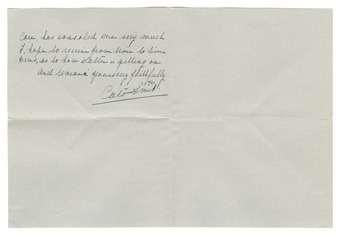 Care, has consoled me very much
I hope to receive from time to time
news, as to how Walter is getting on
and remain yours very faithfully
Cato